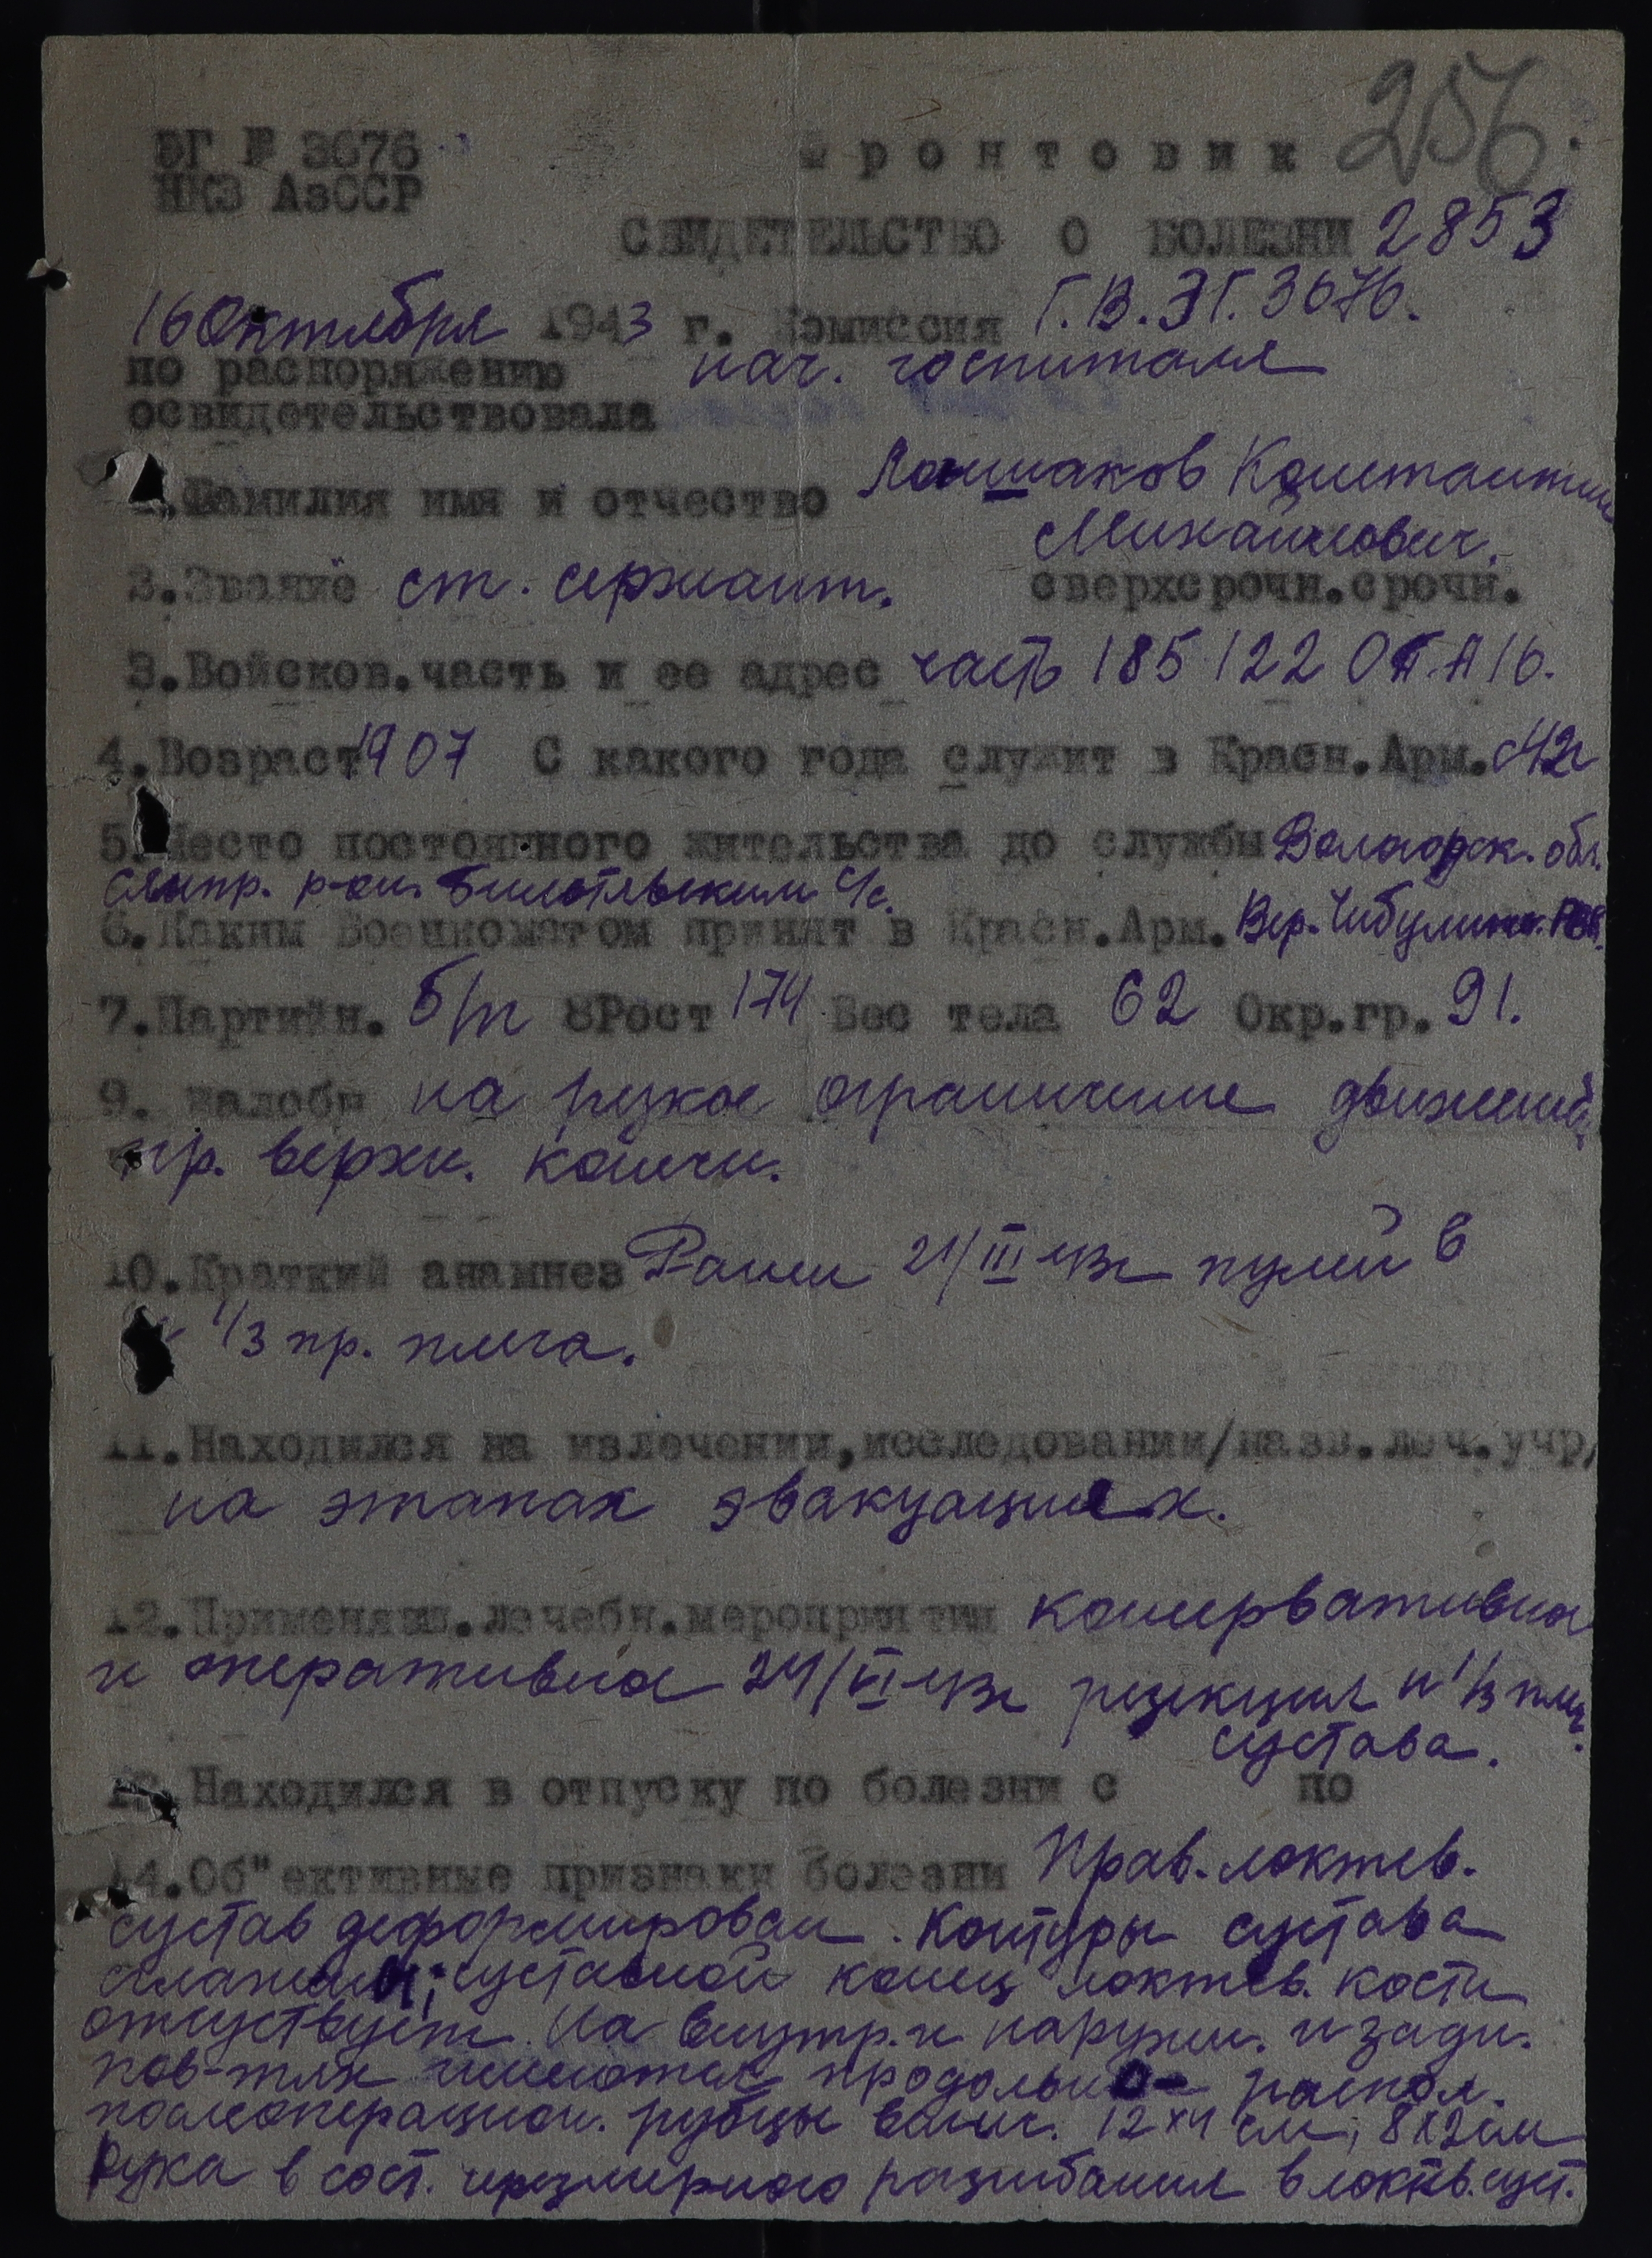 256.
ЭГ № 3676
Фронтовик
НКЗ АзССР
СВИДЕТЕЛЬСТВО О БОЛЕЗНИ 2853
16 Октября 1943 г. Комиссия Г.В.ЭГ.3676.
по распоряжению нач. госпиталя
освидетельствовала
1.Фамилия имя и отчество Константин
Михайлович.
2.Звание ст. сержант. сверхсрочн.срочн.
3.Войсков.часть и ее адрес часть 185 122
4.Возраст 1907 С какого года служит в Красн.Арм. с 42г
5.Место постоянного жительства до службы Вологодск. обл.
р-он. с/с.
6.Каким Военкоматом принят в Красн.Арм. Вер. РВК.
7.Партийн. б/п 8Рост 174 Вес тела 62 Окр.гр. 91.
9. Жалобы на резкое ограничение движений
пр. верхн. конечн.
10.Краткий анамнез Ранен 21/III 43г пулей в
1/3 пр. плеча.
11.Находился на излечении,исследовании/назв.леч.учр/
на этапах эвакуациях.
12.Применявш.лечебн.мероприятия консервативно
и оперативно 24/VI 43г резекция н 1/3 плеч.
сустава.
13.Находился в отпуску по болезни с по
14.Об"ективные признаки болезни Прав. локтев.
сустав деформирован. Контуры сустава
суставной конец локтев. кости
отсутствует. На внутр. и наружн. и задн.
пов-тях имеются продольно- распол.
послеоперацион. рубцы велич. 12х4 см; 8х2см
Рука в сост. чрезмерного разгибания в локтев. суст.